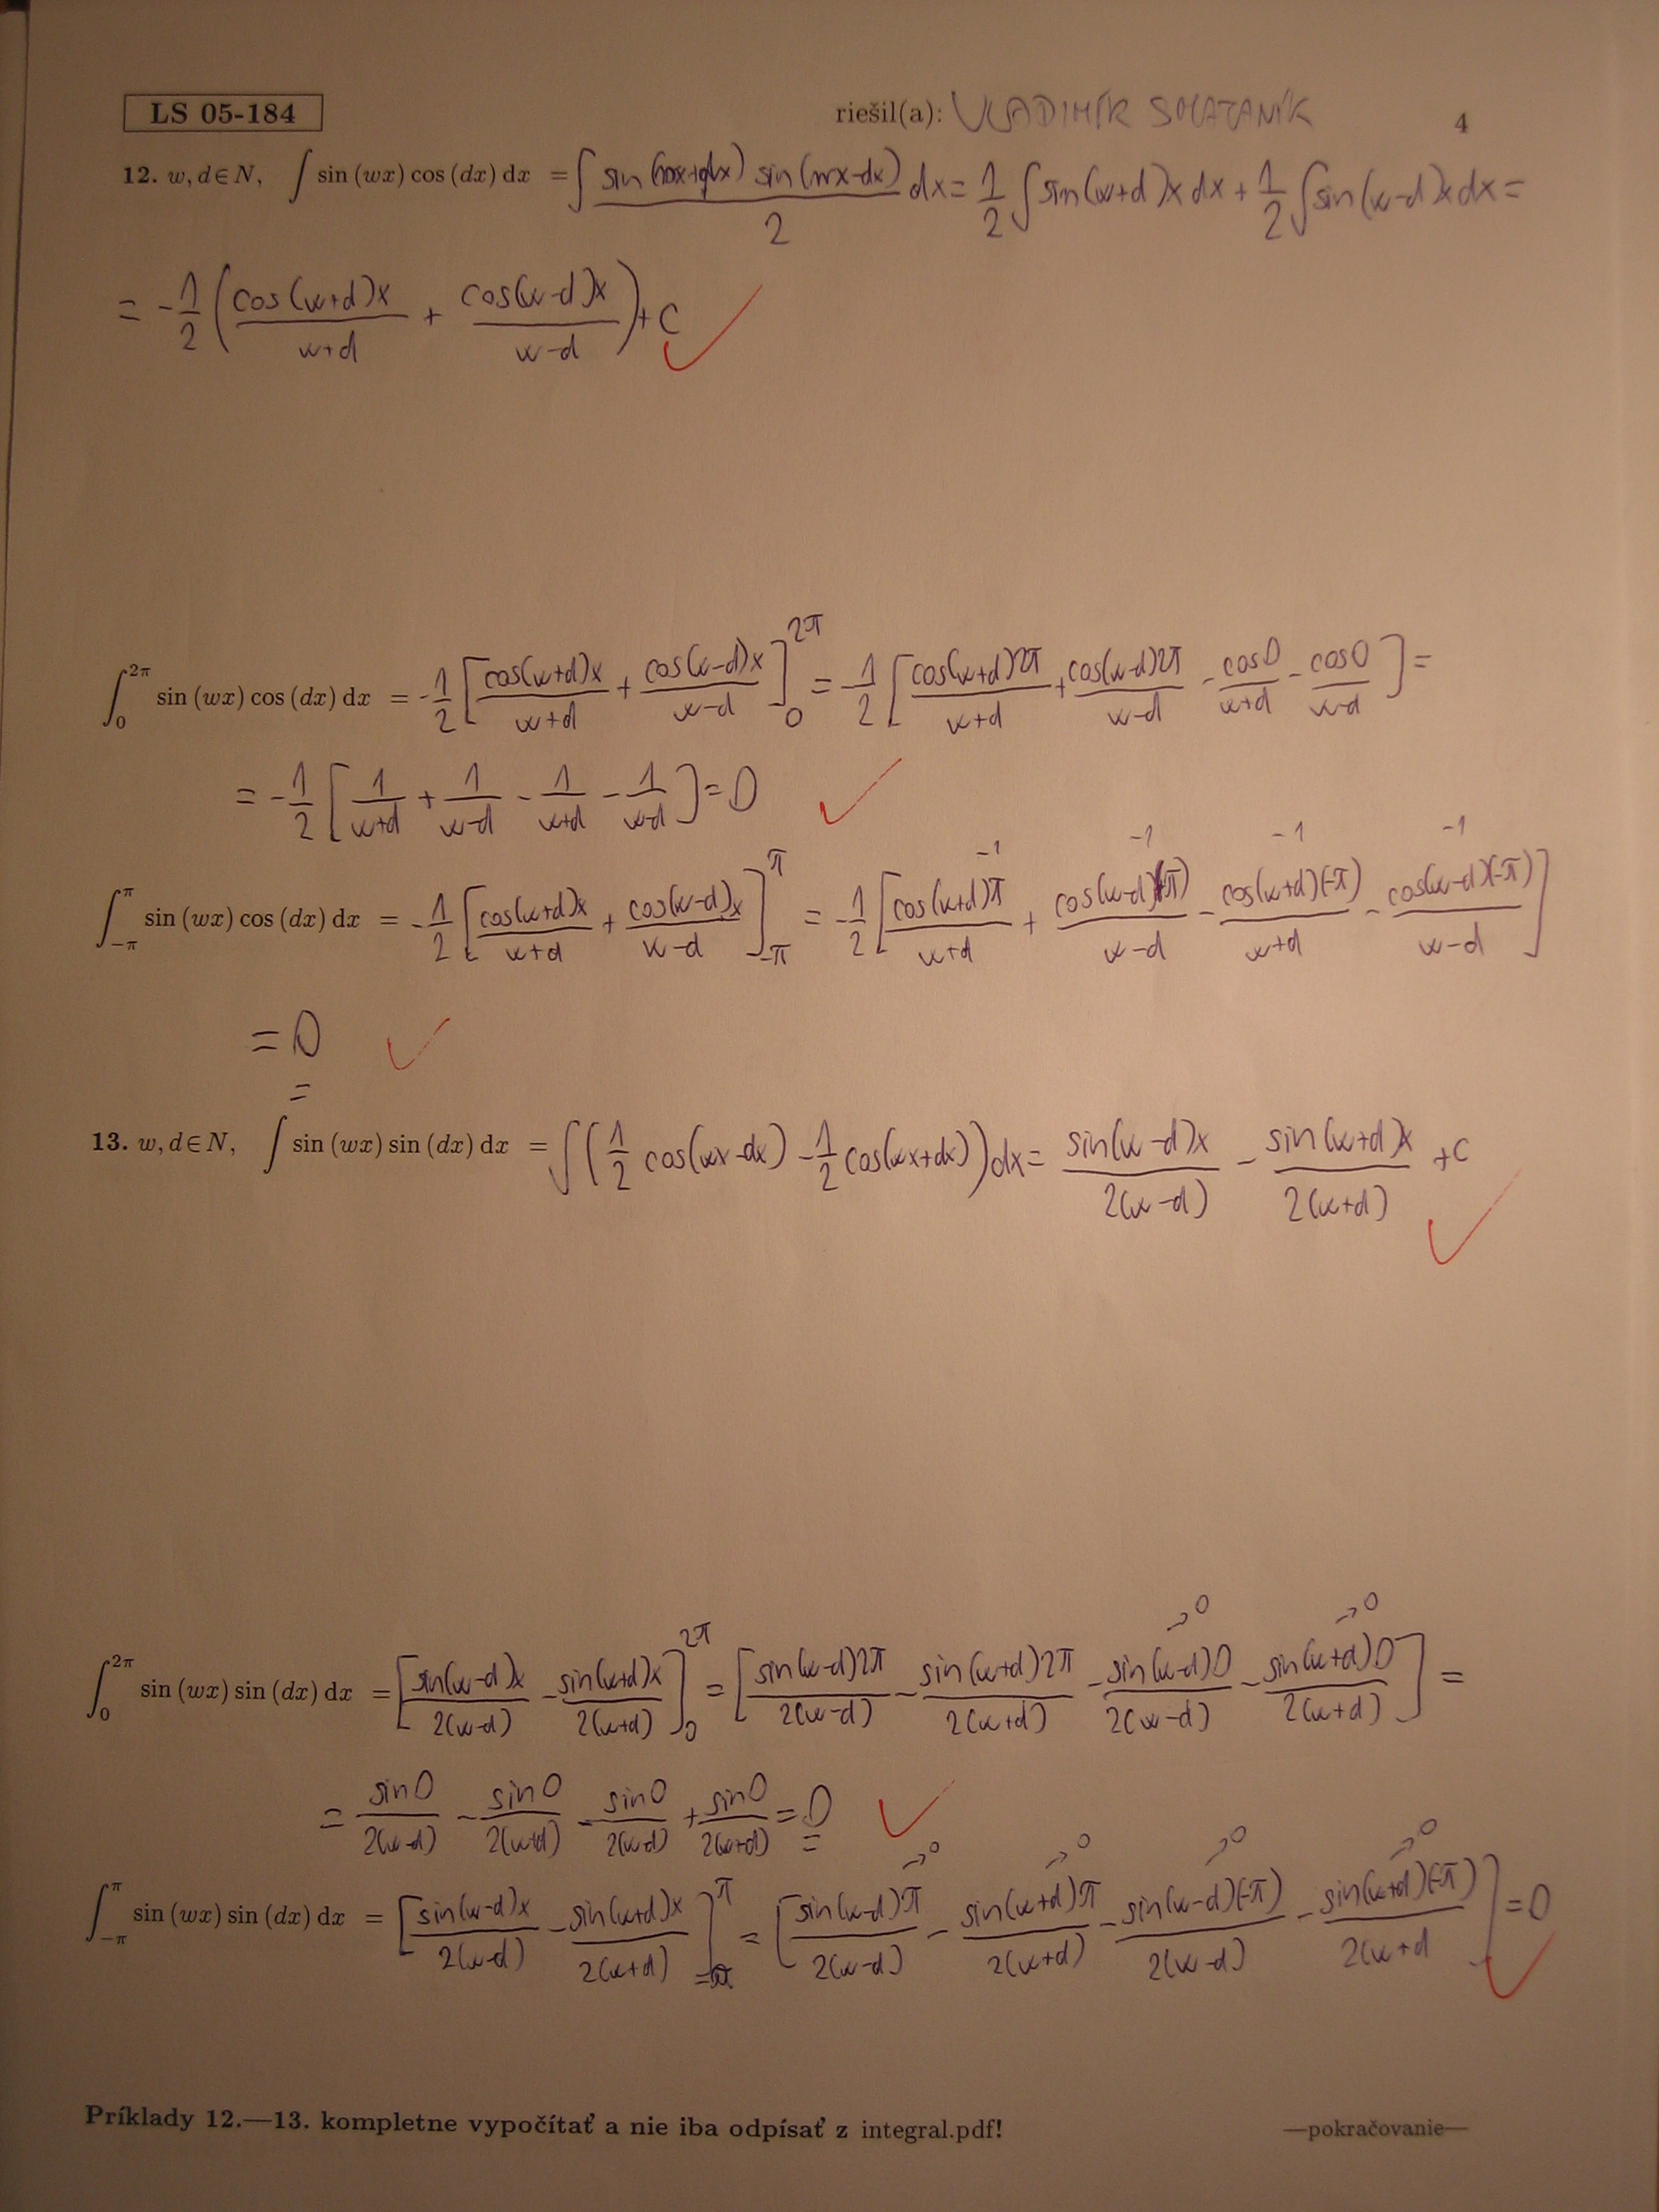 LS 05-184 riešil(a): VLADIMÍR 4
12. w, d ∈ N, ∫ sin (wx) cos (dx) dx = ∫ (sin(wx+dx) sin(wx-dx))/2 dx = 1/2 ∫ sin(w+d)x dx + 1/2 ∫ sin(w-d)x dx =
= -1/2 (cos(w+d)x/(w+d) + cos(w-d)x/(w-d)) + c
∫_0^{2π} sin (wx) cos (dx) dx = -1/2 [cos(w+d)x/(w+d) + cos(w-d)x/(w-d)]_0^{2π} = -1/2 [cos(w+d)2π/(w+d) + cos(w-d)2π/(w-d) - cos0/(w+d) - cos0/(w-d)] =
= -1/2 [1/(w+d) + 1/(w-d) - 1/(w+d) - 1/(w-d)] = 0
-1 -1 -1 -1
∫_{-π}^{π} sin (wx) cos (dx) dx = -1/2 [cos(w+d)x/(w+d) + cos(w-d)x/(w-d)]_{-π}^{π} = -1/2 [cos(w+d)π/(w+d) + cos(w-d)(π)/(w-d) - cos(w+d)(-π)/(w+d) - cos(w-d)(-π)/(w-d)]
= 0
13. w, d ∈ N, ∫ sin (wx) sin (dx) dx = ∫ (1/2 cos(wx-dx) - 1/2 cos(wx+dx)) dx = sin(w-d)x/2(w-d) - sin(w+d)x/2(w+d) + c
→0 →0
∫_0^{2π} sin (wx) sin (dx) dx = [sin(w-d)x/2(w-d) - sin(w+d)x/2(w+d)]_0^{2π} = [sin(w-d)2π/2(w-d) - sin(w+d)2π/2(w+d) - sin(w-d)0/2(w-d) - sin(w+d)0/2(w+d)] =
= sin0/2(w-d) - sin0/2(w+d) - sin0/2(w-d) + sin0/2(w+d) = 0
→0 →0 →0 →0
∫_{-π}^{π} sin (wx) sin (dx) dx = [sin(w-d)x/2(w-d) - sin(w+d)x/2(w+d)]_{-π}^{π} = [sin(w-d)π/2(w-d) - sin(w+d)π/2(w+d) - sin(w-d)(-π)/2(w-d) - sin(w+d)(-π)/2(w+d] = 0
Príklady 12.—13. kompletne vypočítať a nie iba odpísať z integral.pdf! —pokračovanie—